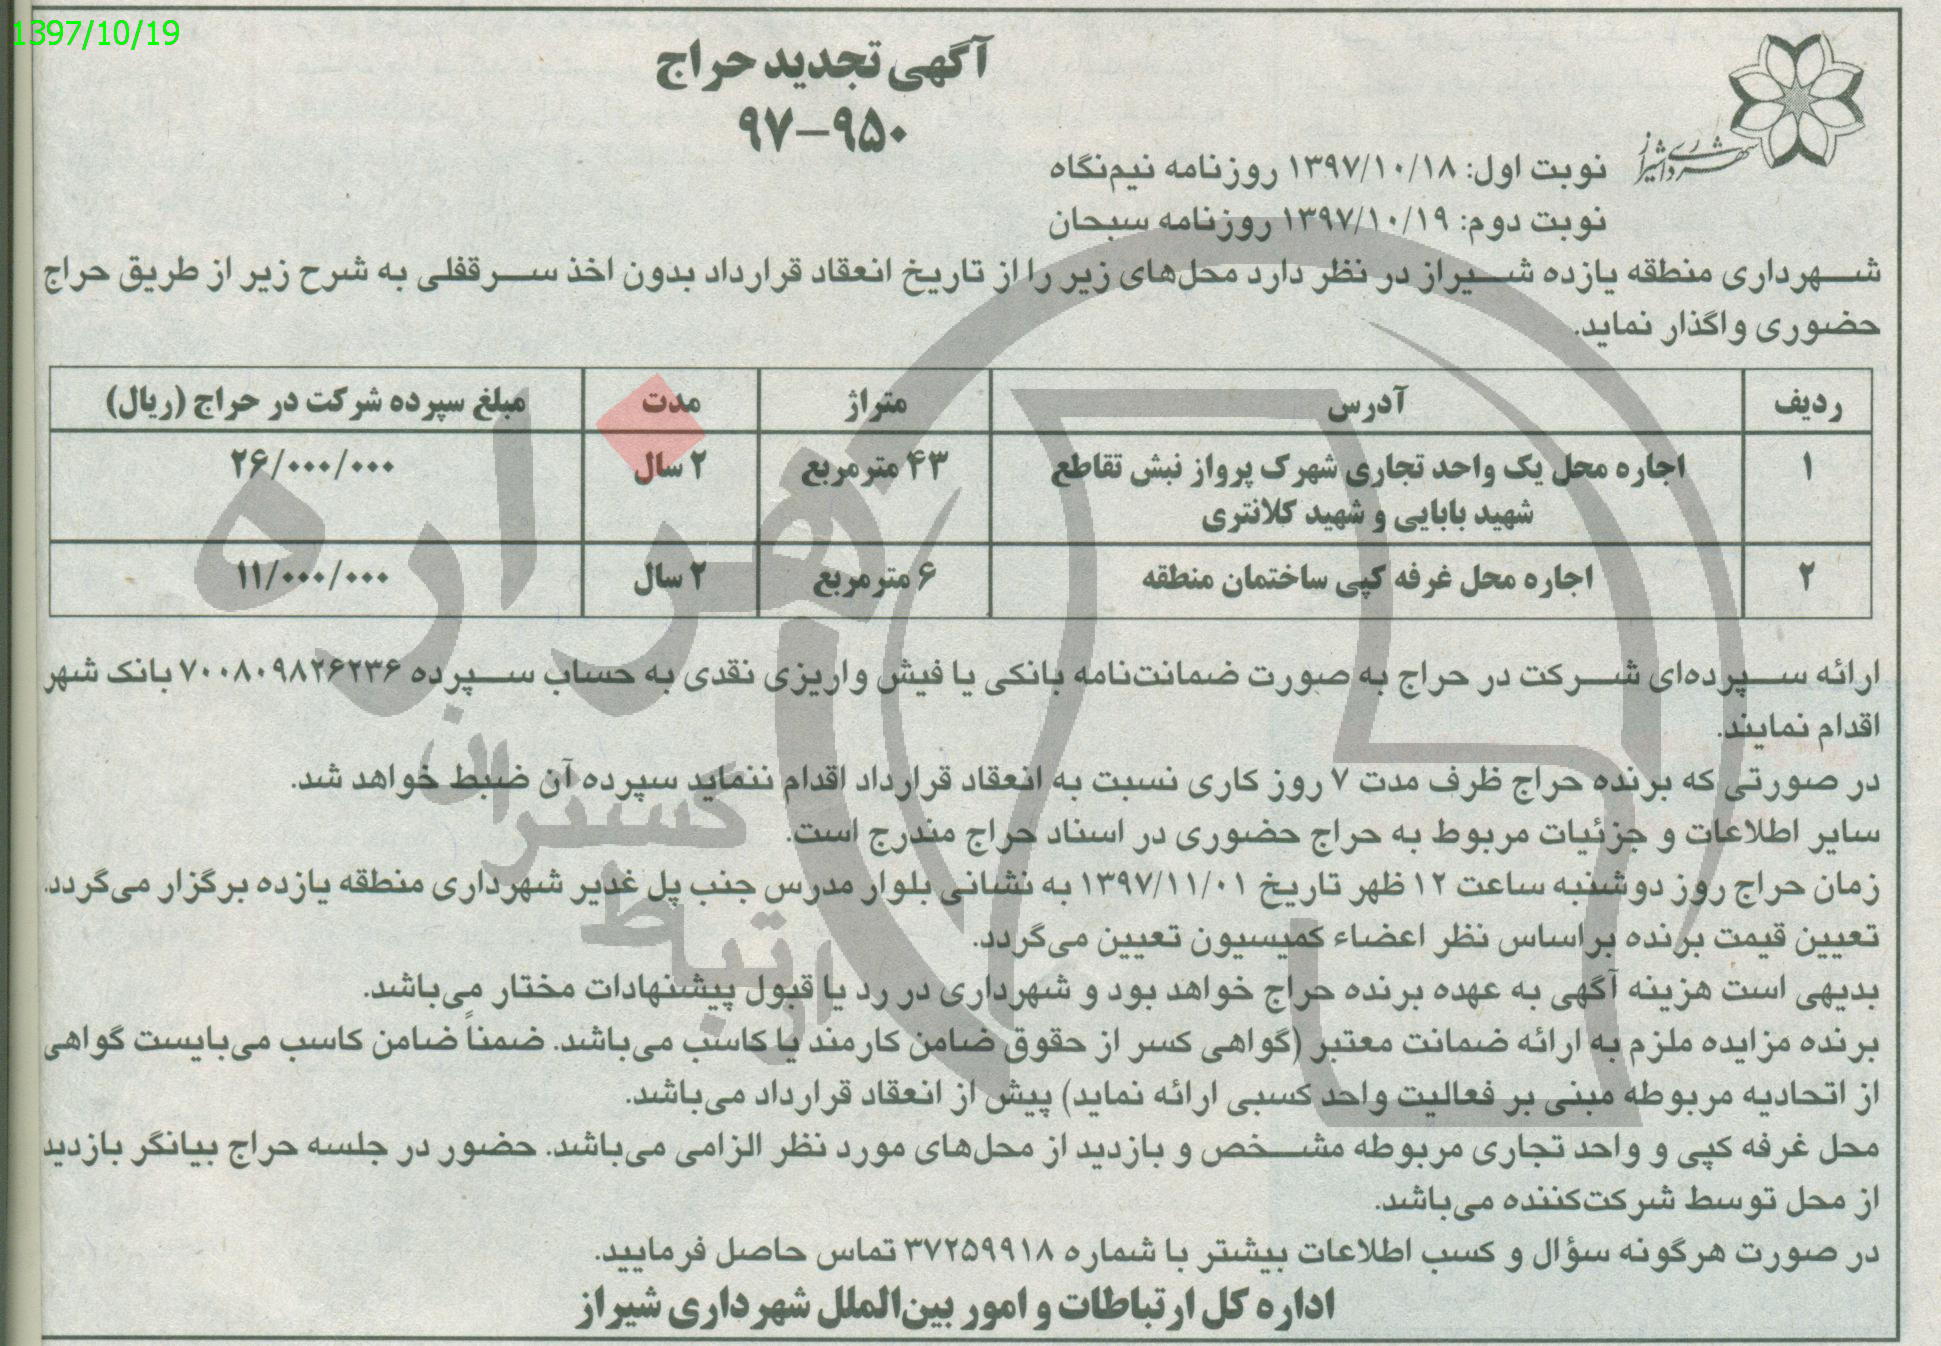 1397/10/19
آگهی تجدید حراج
۹۷-۹۵۰
شهرداری شیراز
نوبت اول: ۱۳۹۷/۱۰/۱۸ روزنامه نیم‌نگاه
نوبت دوم: ۱۳۹۷/۱۰/۱۹ روزنامه سبحان
شهرداری منطقه یازده شیراز در نظر دارد محل‌های زیر را از تاریخ انعقاد قرارداد بدون اخذ سرقفلی به شرح زیر از طریق حراج
حضوری واگذار نماید.
ردیف آدرس متراژ مدت مبلغ سپرده شرکت در حراج (ریال)
۱ اجاره محل یک واحد تجاری شهرک پرواز نبش تقاطع ۴۳ مترمربع ۲ سال ۲۶/۰۰۰/۰۰۰
شهید بابایی و شهید کلانتری
۲ اجاره محل غرفه کپی ساختمان منطقه ۶ مترمربع ۲ سال ۱۱/۰۰۰/۰۰۰
ارائه سپرده‌ای شرکت در حراج به صورت ضمانت‌نامه بانکی یا فیش واریزی نقدی به حساب سپرده ۷۰۰۸۰۹۸۲۶۲۳۶ بانک شهر
اقدام نمایند.
در صورتی که برنده حراج ظرف مدت ۷ روز کاری نسبت به انعقاد قرارداد اقدام ننماید سپرده آن ضبط خواهد شد.
سایر اطلاعات و جزئیات مربوط به حراج حضوری در اسناد حراج مندرج است.
زمان حراج روز دوشنبه ساعت ۱۲ ظهر تاریخ ۱۳۹۷/۱۱/۰۱ به نشانی بلوار مدرس جنب پل غدیر شهرداری منطقه یازده برگزار می‌گردد.
تعیین قیمت برنده براساس نظر اعضاء کمیسیون تعیین می‌گردد.
بدیهی است هزینه آگهی به عهده برنده حراج خواهد بود و شهرداری در رد یا قبول پیشنهادات مختار می‌باشد.
برنده مزایده ملزم به ارائه ضمانت معتبر (گواهی کسر از حقوق ضامن کارمند یا کاسب می‌باشد. ضمناً ضامن کاسب می‌بایست گواهی
از اتحادیه مربوطه مبنی بر فعالیت واحد کسبی ارائه نماید) پیش از انعقاد قرارداد می‌باشد.
محل غرفه کپی و واحد تجاری مربوطه مشخص و بازدید از محل‌های مورد نظر الزامی می‌باشد. حضور در جلسه حراج بیانگر بازدید
از محل توسط شرکت‌کننده می‌باشد.
در صورت هرگونه سؤال و کسب اطلاعات بیشتر با شماره ۳۷۲۵۹۹۱۸ تماس حاصل فرمایید.
اداره کل ارتباطات و امور بین‌الملل شهرداری شیراز
هزاره
گستران
ارتباط